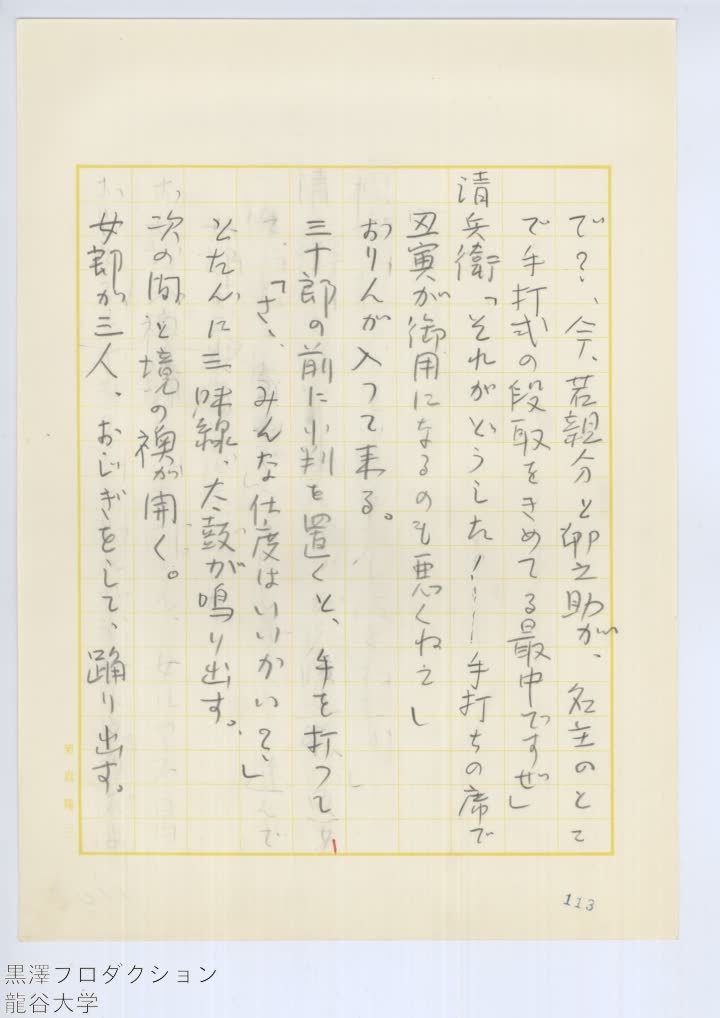 で？、今、若親分と卯之助が、名主のとこ
で手打式の段取をきめてる最中ですぜ」
清兵衛「それがどうした！――手打ちの席で
丑寅が御用になるのも悪くねえ」
おりんが入って来る。
三十郎の前に小判を置くと、手を打って
「さ、みんな仕度はいいかい？」
とたんに三味線、太鼓が鳴り出す。
次の間と境の襖が開く。
女郎が三人、おじぎをして、踊り出す。
113
黒澤プロダクション
龍谷大学